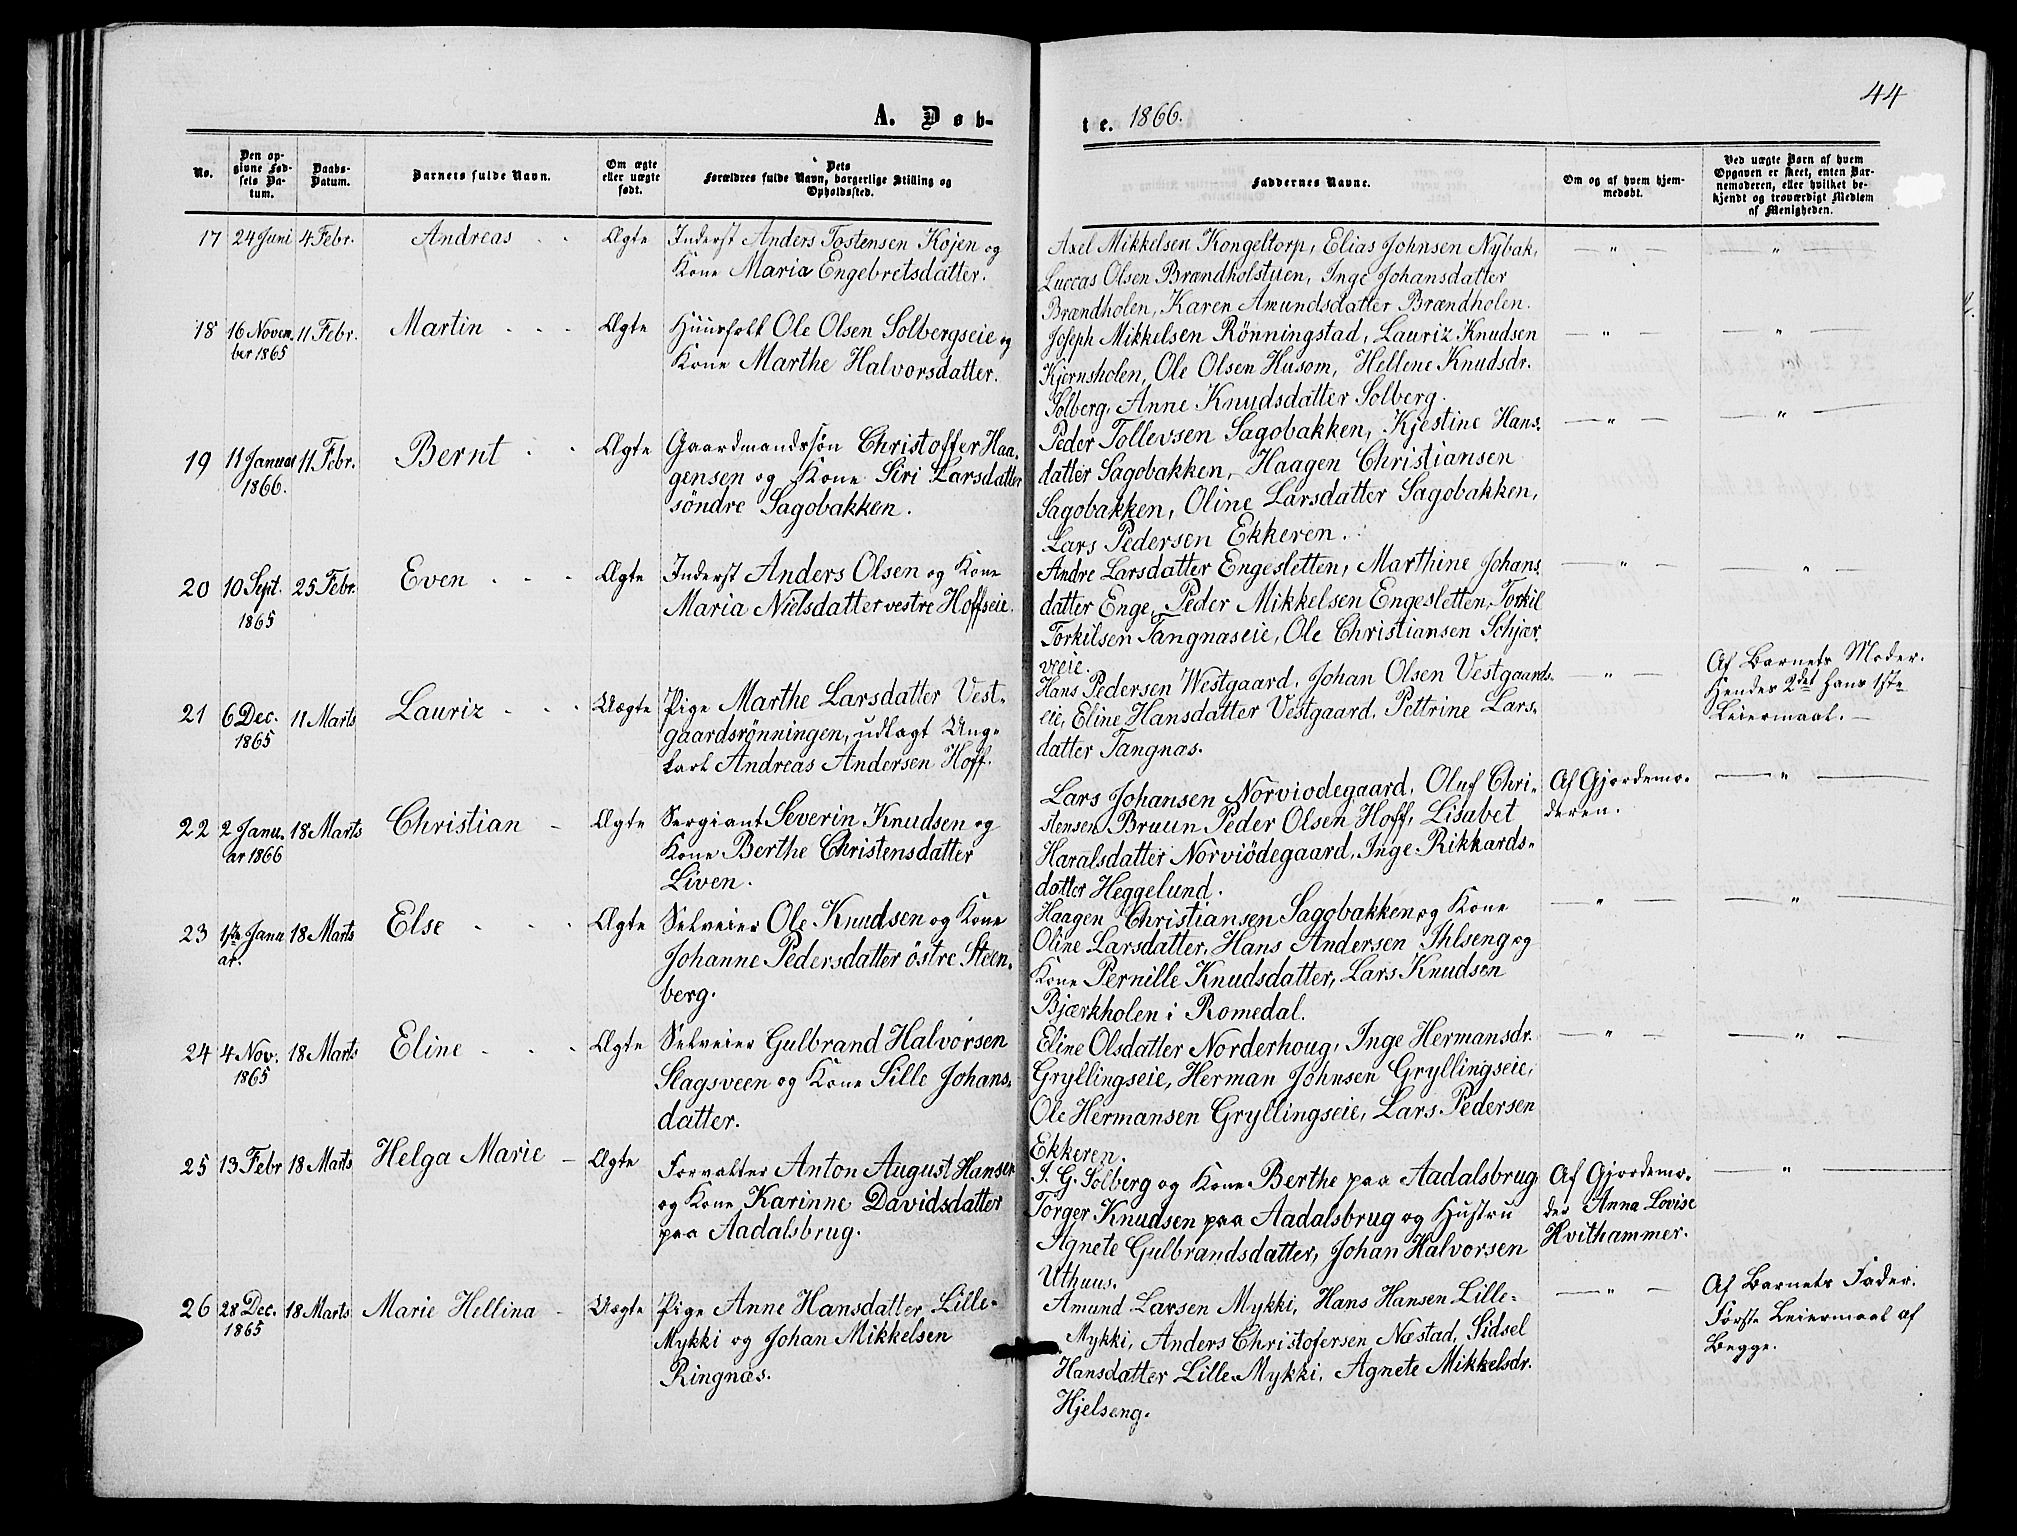 44
A. Døb-
te. 1866.
No.
Den op-
givne Fød-
sels Da-
tum.
Daabs-
Datum.
Barnets fulde Navn.
Om ægte
eller uægte
født.
Dets
Forældres fulde Navn, borgerlige Stilling og
Opholdssted.
Faddernes Navne.
Om og af hvem hjem-
medøbt.
Ved uægte Børn af hvem
Opgaven er skeet, enten Bar-
nemoderen, eller hvilket be-
kjendt og troværdigt Medlem
af Menigheden.
17 24 Juni 4 Febr. Andreas - - Ægte Inderst Anders Tostensen Kojen og
Kone Maria Engebretsdatter.
Axel Mikkelsen Kongeltorp, Elias Johnsen Nybak,
Luccas Olsen Brændholstuen, Inge Johansdatter
Brændholen, Karen Amundsdatter Brændholen.
— " — — " —
18 16 Novem- 11 Febr. Martin - - - Ægte Huusfolk Ole Olsen Solbergseie og
ber 1865 Kone Marthe Halvorsdatter.
Joseph Mikkelsen Rönningstad, Lauriz Knudsen
Kjernsholen, Ole Olsen Husom, Hellene Knudsdr.
Solberg, Anne Knudsdatter Solberg.
— " — — " —
19 11 Januar 11 Febr. Bernt - - Ægte Gaardmandssøn Christoffer Haa-
1866. gensen og Kone Siri Larsdatter
söndre Sagobakken.
Peder Tollevsen Sagobakken, Kjestine Hans-
datter Sagobakken, Haagen Christiansen
Sagobakken, Oline Larsdatter Sagobakken,
Lars Pedersen Ekkeren.
— " — — " —
20 10 Sept. 25 Febr. Even - - - Ægte Inderst Anders Olsen og Kone
1865 Maria Nielsdatter vestre Hoffseie.
Andre Larsdatter Engesletten, Marthine Johans-
datter Enge, Peder Mikkelsen Engesletten, Torkil
Torkilsen Tangnæseie, Ole Christiansen Schjær-
veeie.
— " — — " —
21 6 Dec. 11 Marts Lauriz - - - Uægte Pige Marthe Larsdatter Vest-
1865 gaardsrönningen, udlagt Ung-
karl Andreas Andersen Hoff.
Hans Pedersen Westgaard, Johan Olsen Vestgaards-
eie, Eline Hansdatter Vestgaard, Pettrine Lars-
datter Tangnæs.
— " —
Af Barnets Moder.
Hendes 2det hans 1ste
Leiermaal. —
22 2 Janu- 18 Marts Christian - Ægte Sergiant Severin Knudsen og
ar 1866 Kone Berthe Christensdatter
Liven.
Lars Johansen Norviodegaard, Oluf Chri-
stensen Bruun Peder Olsen Hoff, Lisabet
Haralsdatter Norviödegaard, Inge Rikkards-
datter Heggelund.
Af Gjordemo-
deren.
— " —
23 1ste Janu- 18 Marts Else - - - Ægte Selveier Ole Knudsen og Kone
ar. Johanne Pedersdatter östre Steen-
berg.
Haagen Christiansen Sagobakken og Kone
Oline Larsdatter, Hans Andersen Ihlseng og
Kone Pernille Knudsdatter, Lars Knudsen
Bjærkholen i Romedal.
— " — — " —
24 4 Nov. 18 Marts Eline - - - Ægte Selveier Gulbrand Halvorsen
1865 Slagsveen og Kone Sille Johans-
datter.
Eline Olsdatter Norderhoug, Inge Hermansdr.
Gryllingseie, Herman Johnsen Gryllingseie,
Ole Hermansen Gryllingseie, Lars Pedersen
Ekkeren.
— " — — " —
25 13 Febr 18 Marts Helga Marie - Ægte Forvalter Anton August Hansen
og Kone Karinne Davidsdatter
paa Aadalsbrug.
I. G. Solberg og Kone Berthe paa Aadalsbrug
Torger Knudsen paa Aadalsbrug og Hustru
Agnete Gulbrandsdatter, Johan Halvorsen
Uthuus.
Af Gjordemo-
der Anna Lovise
Hvithammer.
— " —
26 28 Dec. 18 Marts Marie Hellina - Uægte Pige Anne Hansdatter Lille-
1865 Mykki og Johan Mikkelsen
Ringnæs.
Amund Larsen Mykki, Hans Hansen Lille-
Mykki, Anders Christofersen Næstad, Sidsel
Hansdatter Lille Mykki, Agnete Mikkelsdr.
Hjelseng.
— " —
Af Barnets Fader.
Første Leiermaal af
Begge.